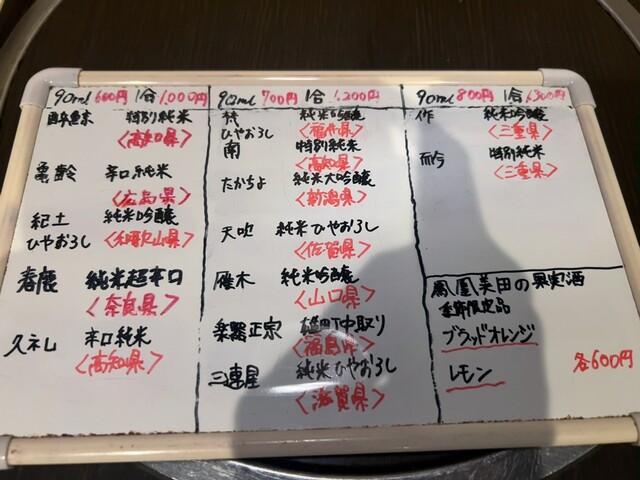 90ml 600円 1合 1,000円
酔鯨 特別純米
<高知県>
亀齢 辛口純米
<広島県>
紀土 純米吟醸
ひやおろし <和歌山県>
春鹿 純米超辛口
<奈良県>
久礼 辛口純米
<高知県>
90ml 700円 1合 1,200円
梵 純米吟醸
ひやおろし <福井県>
南 特別純米
<高知県>
たかちよ 純米大吟醸
<新潟県>
天吹 純米ひやおろし
<佐賀県>
雁木 純米吟醸
<山口県>
楽器正宗 雄町中取り
<福島県>
三連星 純米ひやおろし
<滋賀県>
90ml 800円 1合 1,300円
作 純米吟醸
<三重県>
而今 特別純米
<三重県>
鳳凰美田の果実酒
季節限定品
ブラッドオレンジ
レモン
各600円